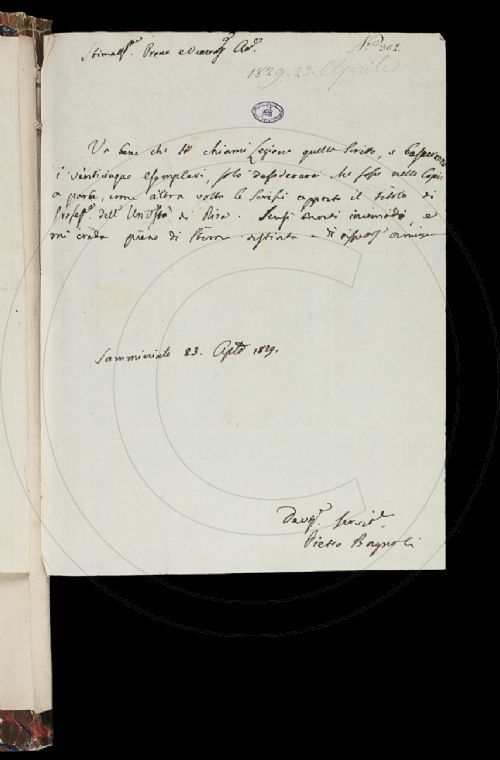 Stimatiss.º Prone e Veneratiss. Am.º
N.º 302.
1829. 23. Aprile
Va bene che si chiami Lezione quello Scritto, e basteranno
i venticinque esemplari, solo desidererei che fosse nelle Copie
a parte, come altra volta le scrissi apposto il titolo di
Profess.e dell' Univers.tà di Pisa. Scusi tanti incomodi, e
mi creda pieno di Stima distinta e di
Samminiato 23. Aple 1829.
Devot. Servit.
Pietro Bagnoli